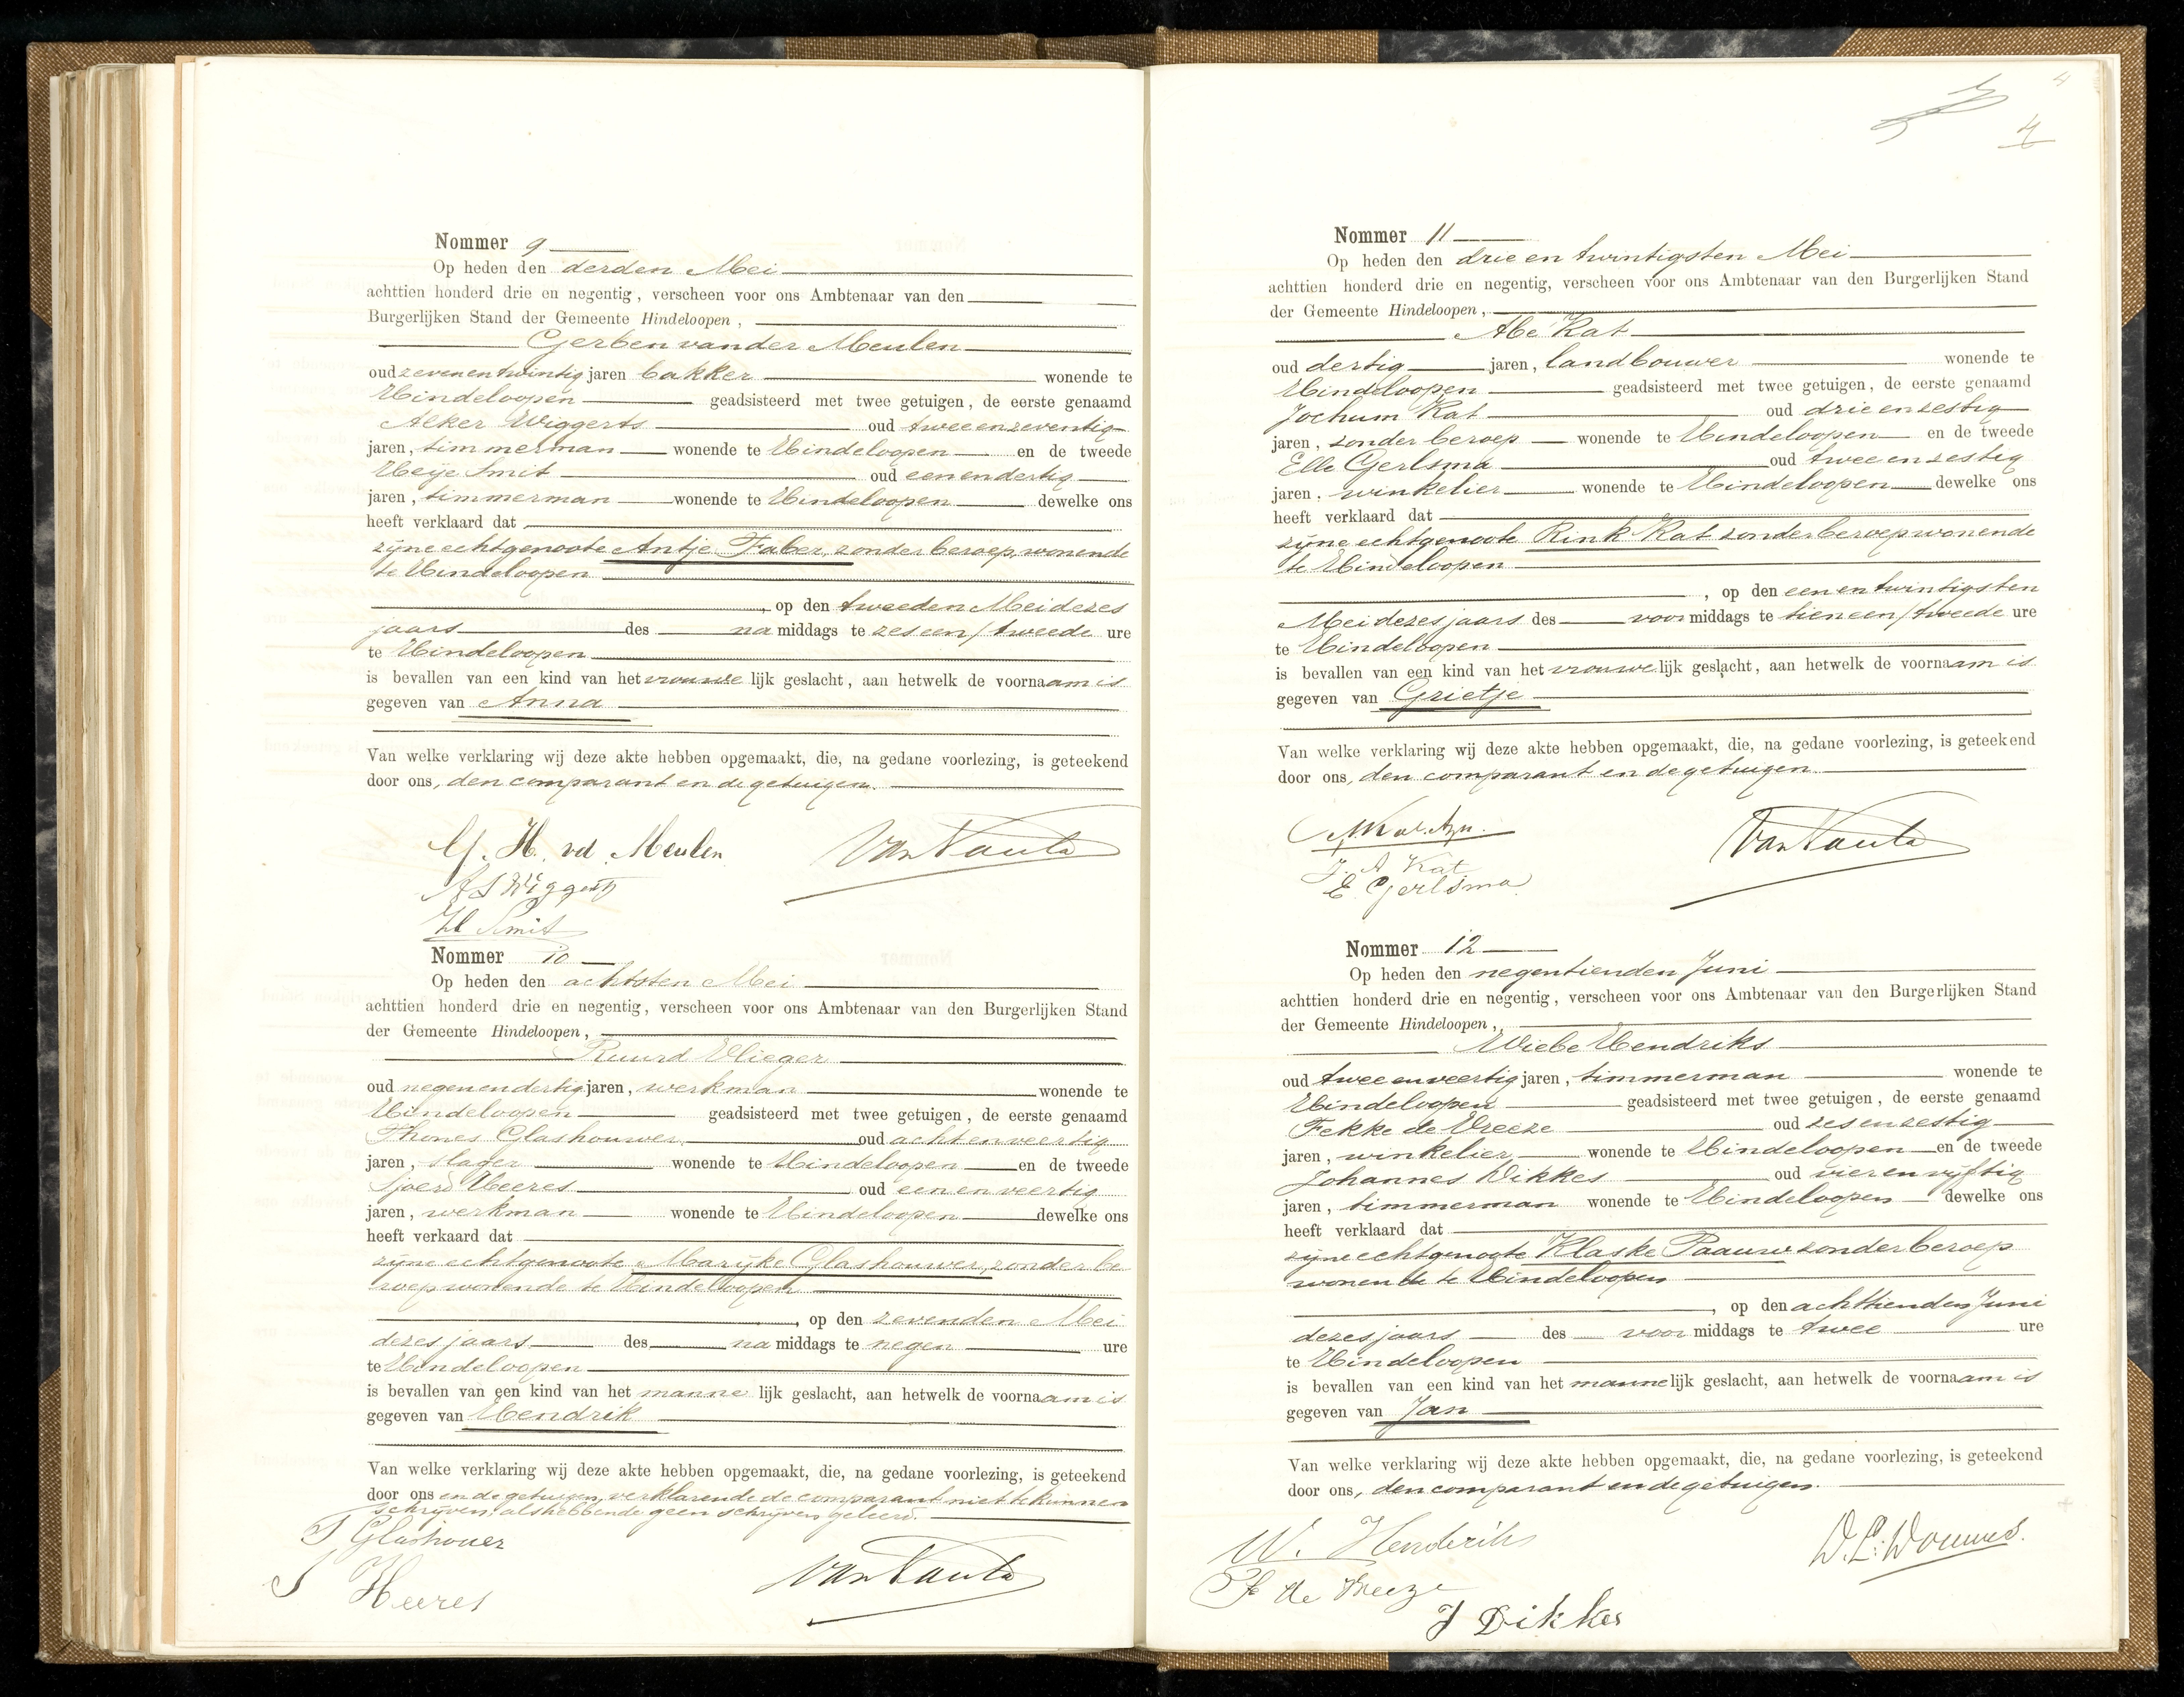 Nommer 9
Op heden den derden Mei
achttien honderd drie en negentig, verscheen voor ons Ambtenaar van den
Burgerlijken Stand der Gemeente Hindeloopen,
Gerben van der Meulen
oud zeven en twintig jaren bakker wonende te
Hindeloopen geadsisteerd met twee getuigen, de eerste genaamd
Alker Wiggerts oud twee en zeventig
jaren, timmerman wonende te Hindeloopen en de tweede
Heije Smit oud een en dertig
jaren, timmerman wonende te Hindeloopen dewelke ons
heeft verklaard dat
zijne echtgenoote Antje Faber, zonder beroep, wonende
te Hindeloopen
, op den tweeden Mei dezes
jaars des na middags te zes een/tweede ure
te Hindeloopen
is bevallen van een kind van het vrouwe lijk geslacht, aan hetwelk de voornaam is
gegeven van Anna
Van welke verklaring wij deze akte hebben opgemaakt, die, na gedane voorlezing, is geteekend
door ons, den comparant en de getuigen.
G. H. vd. Meulen VanNauta
A S Wiggerts
H Smit
Nommer 10
Op heden den achtsten Mei
achttien honderd drie en negentig, verscheen voor ons Ambtenaar van den Burgerlijken Stand
der Gemeente Hindeloopen,
Ruurd Vlieger
oud negen en dertig jaren, werkman wonende te
Hindeloopen geadsisteerd met twee getuigen, de eerste genaamd
Thones Glashouwer, oud acht en veertig
jaren, slager wonende te Hindeloopen en de tweede
Sjoerd Heeres oud een en veertig
jaren, werkman wonende te Hindeloopen dewelke ons
heeft verkaard dat
zijne echtgenoote Marijke Glashouwer, zonder be
roep wonende te Hindeloopen
, op den zevenden Mei
dezes jaars des na middags te negen ure
te Hindeloopen
is bevallen van een kind van het manne lijk geslacht, aan hetwelk de voornaam is
gegeven van Hendrik
Van welke verklaring wij deze akte hebben opgemaakt, die, na gedane voorlezing, is geteekend
door ons en de getuigen, verklarende de comparant niet te kunnen
schrijven, als hebbende geen schrijven geleerd.
T Glashouer
S Heeres VanNauta
4
4
Nommer 11
Op heden den drie en twintigsten Mei
achttien honderd drie en negentig, verscheen voor ons Ambtenaar van den Burgerlijken Stand
der Gemeente Hindeloopen,
Abe Kat
oud dertig jaren, landbouwer wonende te
Hindeloopen geadsisteerd met twee getuigen, de eerste genaamd
Jochum Kat oud drie en zestig
jaren, zonder beroep wonende te Hindeloopen en de tweede
Elle Gerlsma oud twee en zestig
jaren, winkelier wonende te Hindeloopen dewelke ons
heeft verklaard dat
zijne echtgenoote Rink Kat zonder beroep wonende
te Hindeloopen
, op den een en twintigsten
Mei dezes jaars des voor middags te tien een/tweede ure
te Hindeloopen
is bevallen van een kind van het vrouwe lijk geslacht, aan hetwelk de voornaam is
gegeven van Grietje
Van welke verklaring wij deze akte hebben opgemaakt, die, na gedane voorlezing, is geteekend
door ons, den comparant en de getuigen.
A Kat Azn. VanNauta
J. A Kat
E Gerlsma
Nommer 12
Op heden den negentienden Juni
achttien honderd drie en negentig, verscheen voor ons Ambtenaar van den Burgerlijken Stand
der Gemeente Hindeloopen,
Wiebe Hendriks
oud twee en veertig jaren, timmerman wonende te
Hindeloopen geadsisteerd met twee getuigen, de eerste genaamd
Fekke de Vreeze oud zes en zestig
jaren, winkelier, wonende te Hindeloopen en de tweede
Johannes Dikkes oud vier en vijftig
jaren, timmerman wonende te Hindeloopen dewelke ons
heeft verklaard dat
zijne echtgenoote Klaske Paauw zonder beroep
wonende te Hindeloopen
, op den achttienden Juni
dezes jaars des voor middags te twee ure
te Hindeloopen
is bevallen van een kind van het manne lijk geslacht, aan hetwelk de voornaam is
gegeven van Jan
Van welke verklaring wij deze akte hebben opgemaakt, die, na gedane voorlezing, is geteekend
door ons, den comparant en de getuigen.
W. Hendriks D. L: Douwes.
F de Vreeze
J Dikkes